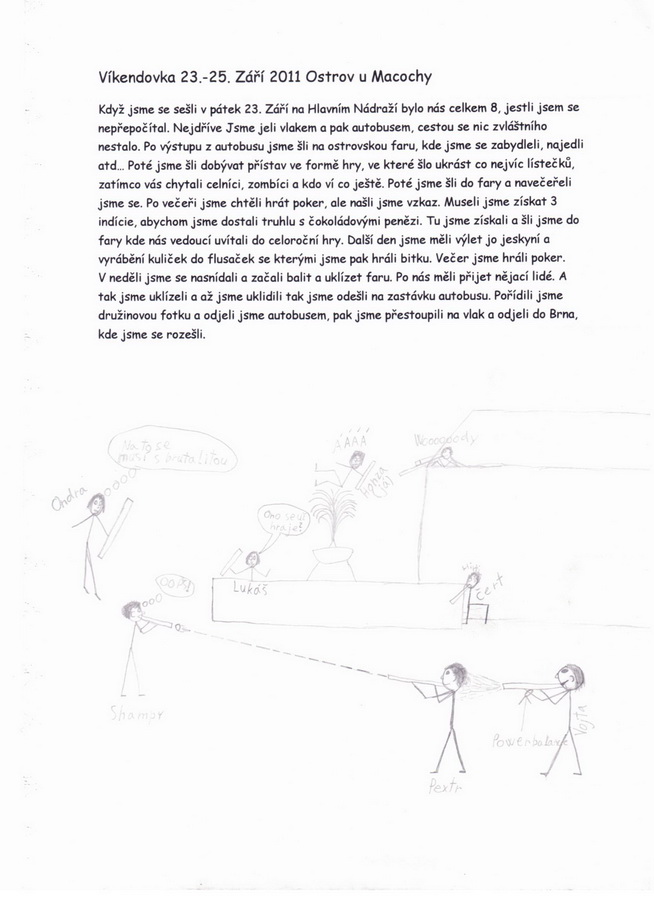 Víkendovka 23.-25. Září 2011 Ostrov u Macochy
Když jsme se sešli v pátek 23. Září na Hlavním Nádraží bylo nás celkem 8, jestli jsem se
nepřepočítal. Nejdříve Jsme jeli vlakem a pak autobusem, cestou se nic zvláštního
nestalo. Po výstupu z autobusu jsme šli na ostrovskou faru, kde jsme se zabydleli, najedli
atd... Poté jsme šli dobývat přístav ve formě hry, ve které šlo ukrást co nejvíc lístečků,
zatímco vás chytali celníci, zombíci a kdo ví co ještě. Poté jsme šli do fary a navečeřeli
jsme se. Po večeři jsme chtěli hrát poker, ale našli jsme vzkaz. Museli jsme získat 3
indície, abychom jsme dostali truhlu s čokoládovými penězi. Tu jsme získali a šli jsme do
fary kde nás vedoucí uvítali do celoroční hry. Další den jsme měli výlet jo jeskyní a
vyrábění kuliček do flusaček se kterými jsme pak hráli bitku. Večer jsme hráli poker.
V neděli jsme se nasnídali a začali balit a uklízet faru. Po nás měli přijet nějací lidé. A
tak jsme uklízeli a až jsme uklidili tak jsme odešli na zastávku autobusu. Pořídili jsme
družinovou fotku a odjeli jsme autobusem, pak jsme přestoupili na vlak a odjeli do Brna,
kde jsme se rozešli.
Na to se
musí s brutalitou
Ondra
ÁÁÁÁ
Honza
(já)
Wooooody
Ono se už
hraje?
Lukáš
čert
Shampy
Powerbalance
Vojta
Pextr